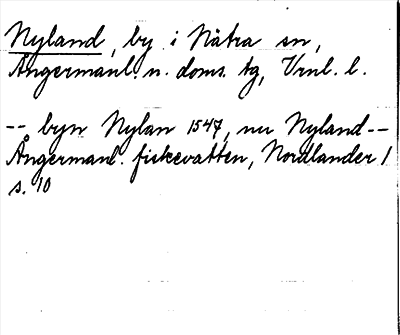 Nyland, by i Nätra sn,
Ångermanl. n. doms. tg, Vrnl. l.
-- byn Nylan 1547, nu Nyland --
Ångermanl. fiskevatten, Nordlander 1
s. 10